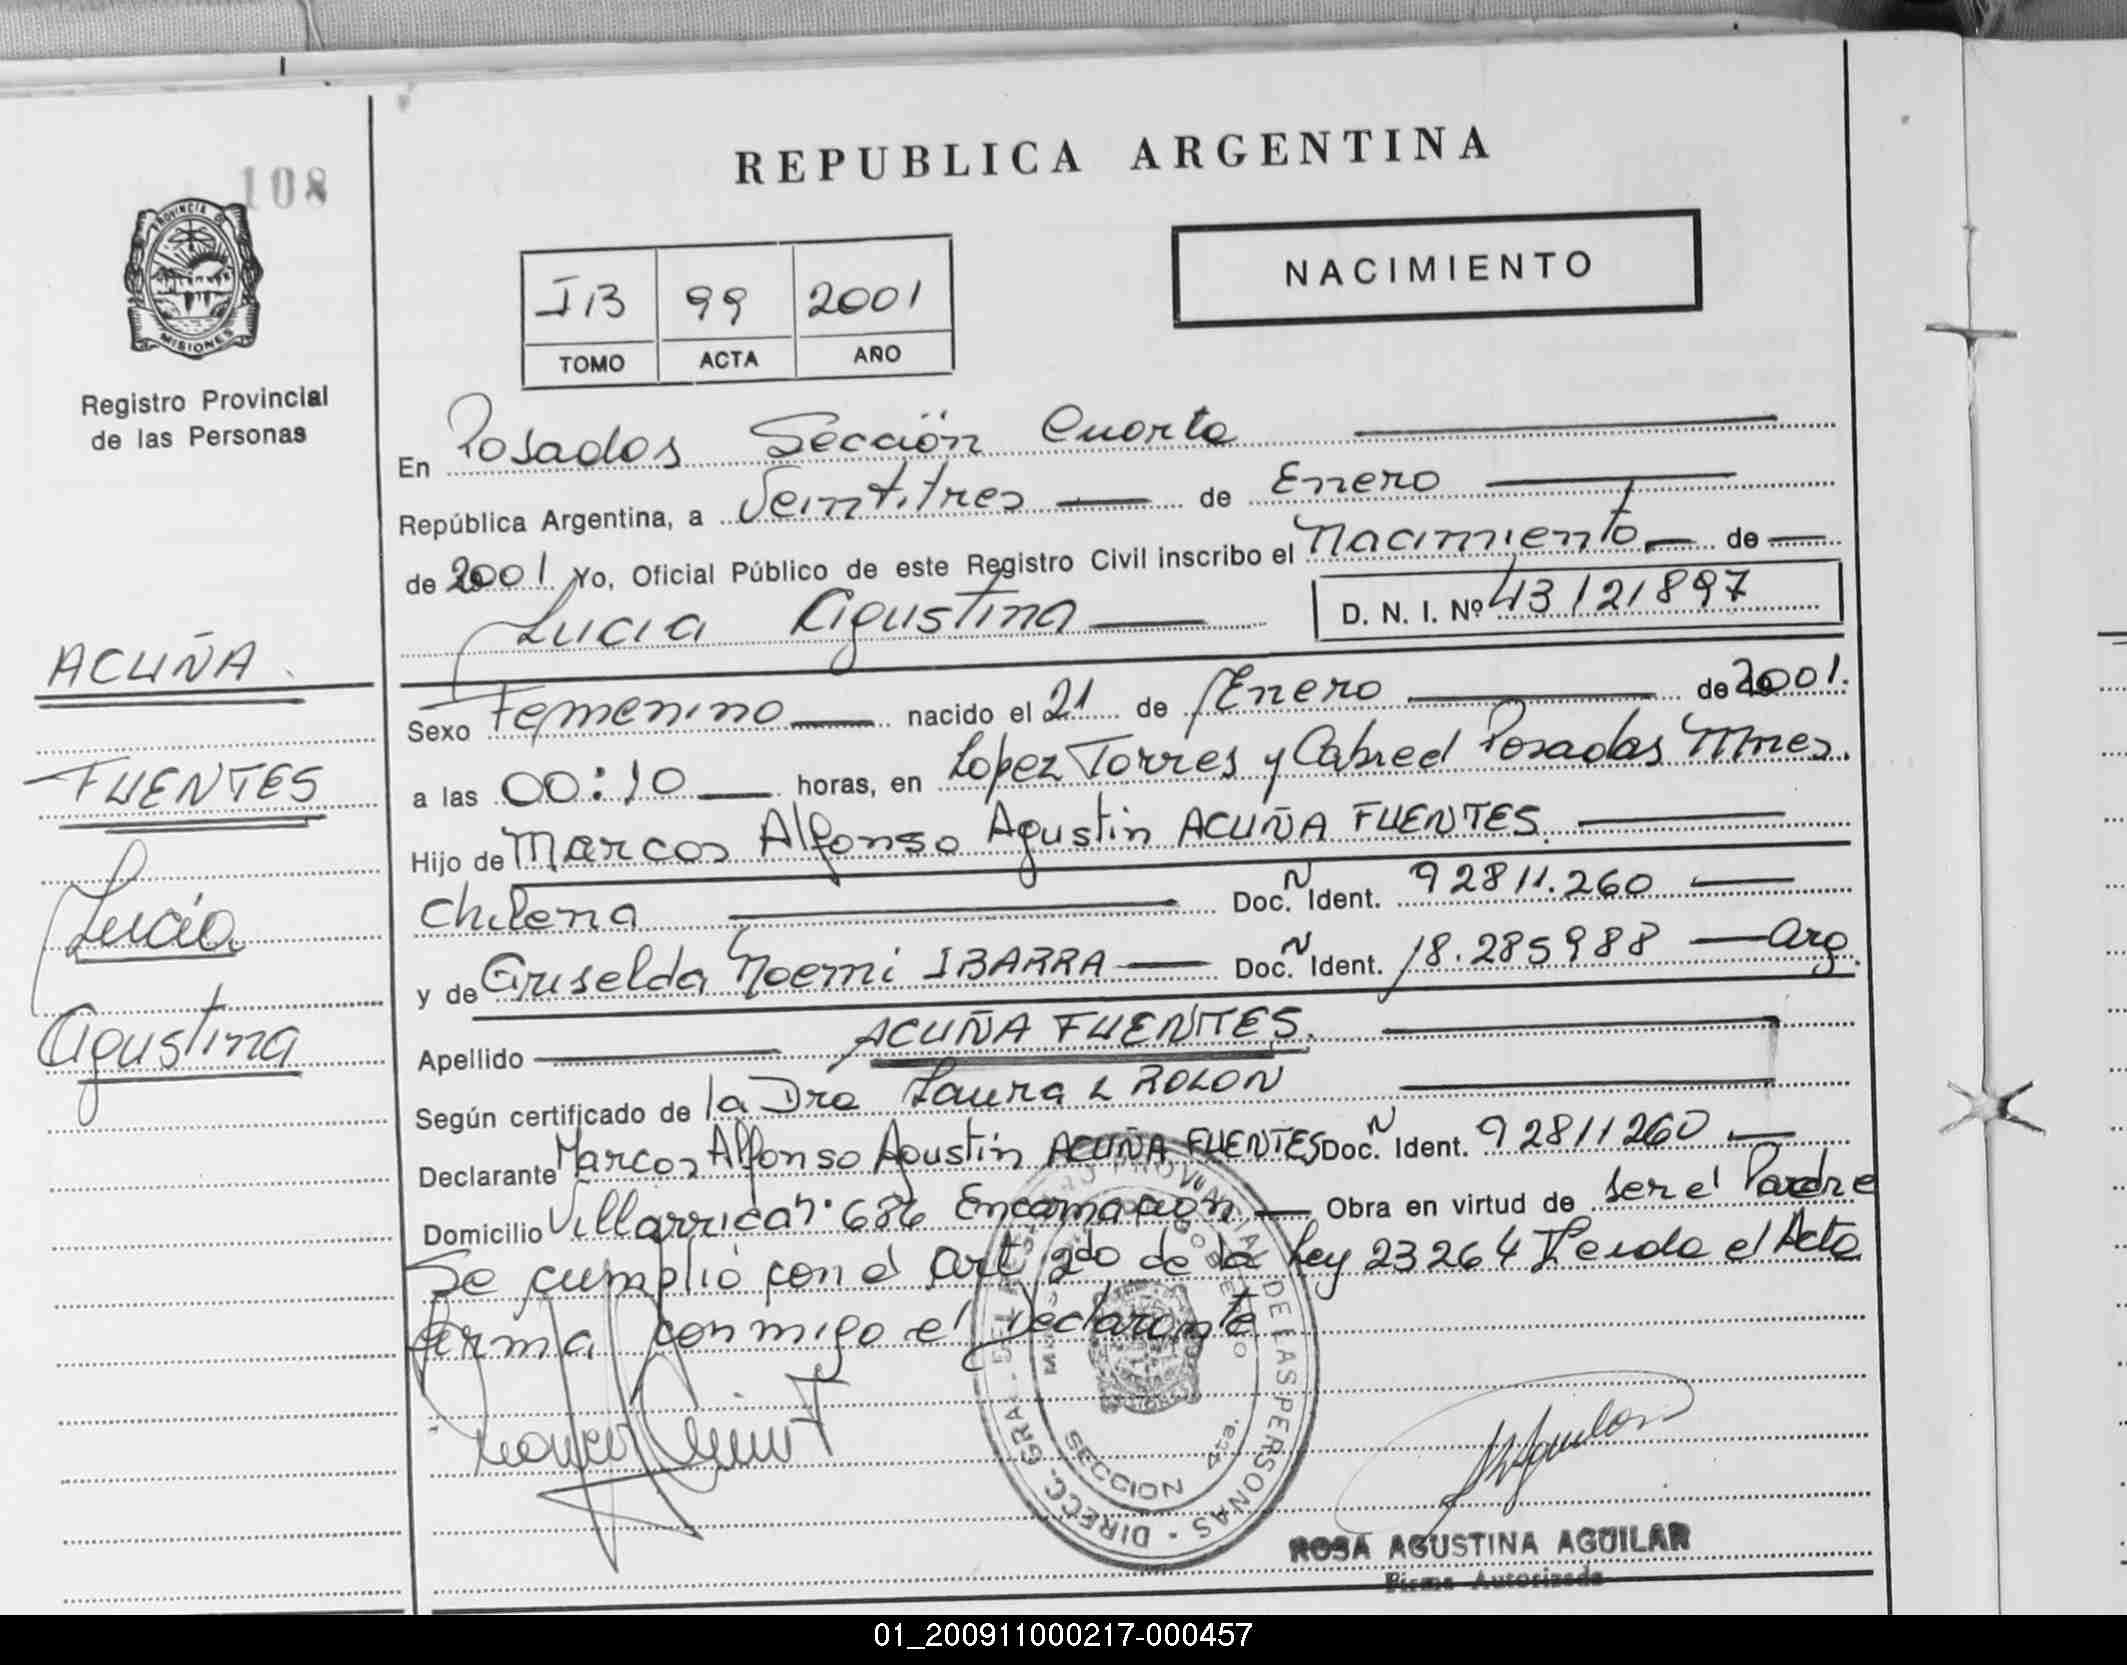 108
REPUBLICA ARGENTINA
PROVINCIA DE
MISIONES
Registro Provincial
de las Personas
NACIMIENTO
IB 99 2001
TOMO ACTA AÑO
En Posadas Sección Cuarta
República Argentina, a Veintitres de Enero
de 2001 Yo, Oficial Público de este Registro Civil inscribo el Nacimiento de
Lucia Agustina D. N. I. Nº 43121897
ACUÑA
FUENTES
Lucia
Agustina
Sexo Femenino nacido el 21 de Enero de 2001.
a las 00:10 horas, en Lopez Torres y Cabred Posadas Mnes.
Hijo de Marcos Alfonso Agustin ACUÑA FUENTES
Chilena Doc. N Ident. 92811.260
y de Griselda Noemi IBARRA Doc. N Ident. 18.285988 Arg.
Apellido ACUÑA FUENTES.
Según certificado de la Dra Laura L ROLON
Declarante Marcos Alfonso Agustin ACUÑA FUENTES Doc. N Ident. 92811260
Domicilio Villarrica nº 686 Encarnación Obra en virtud de ser el Padre
Se cumplió con el Art 2do de la Ley 23264 Leida el Acta
firma conmigo el Declarante
DIRECC. GRAL. DEL REGISTRO PROVINCIAL DE LAS PERSONAS
SECCION 4ta.
ROSA AGUSTINA AGUILAR
Firma Autorizada
01_200911000217-000457